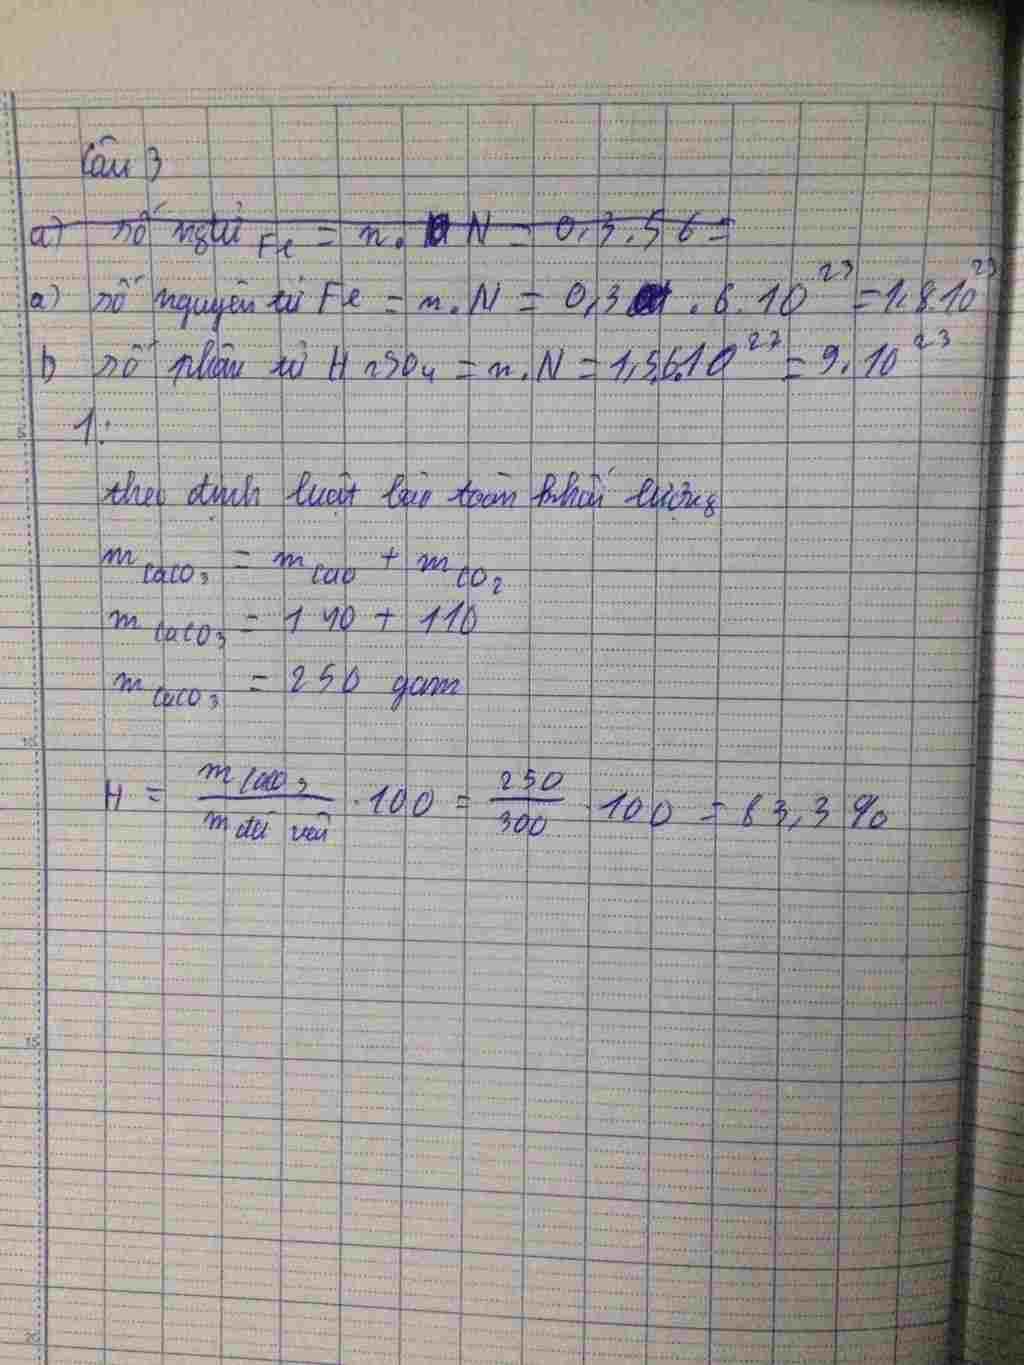 Câu 3
a) số ngtử Fe = n. N = 0,3.56=
a) số nguyên tử Fe = n.N = 0,3 . 6.10²³ = 1,8.10²³
b) số phân tử H2SO4 = n.N = 1,5.6.10²³ = 9.10²³
1:
theo định luật bảo toàn khối lượng
mCaCO3 = mCaO + mCO2
mCaCO3 = 140 + 110
mCaCO3 = 250 gam
H = mCaCO3 / mđá vôi . 100 = 250/300 . 100 = 83,3 %